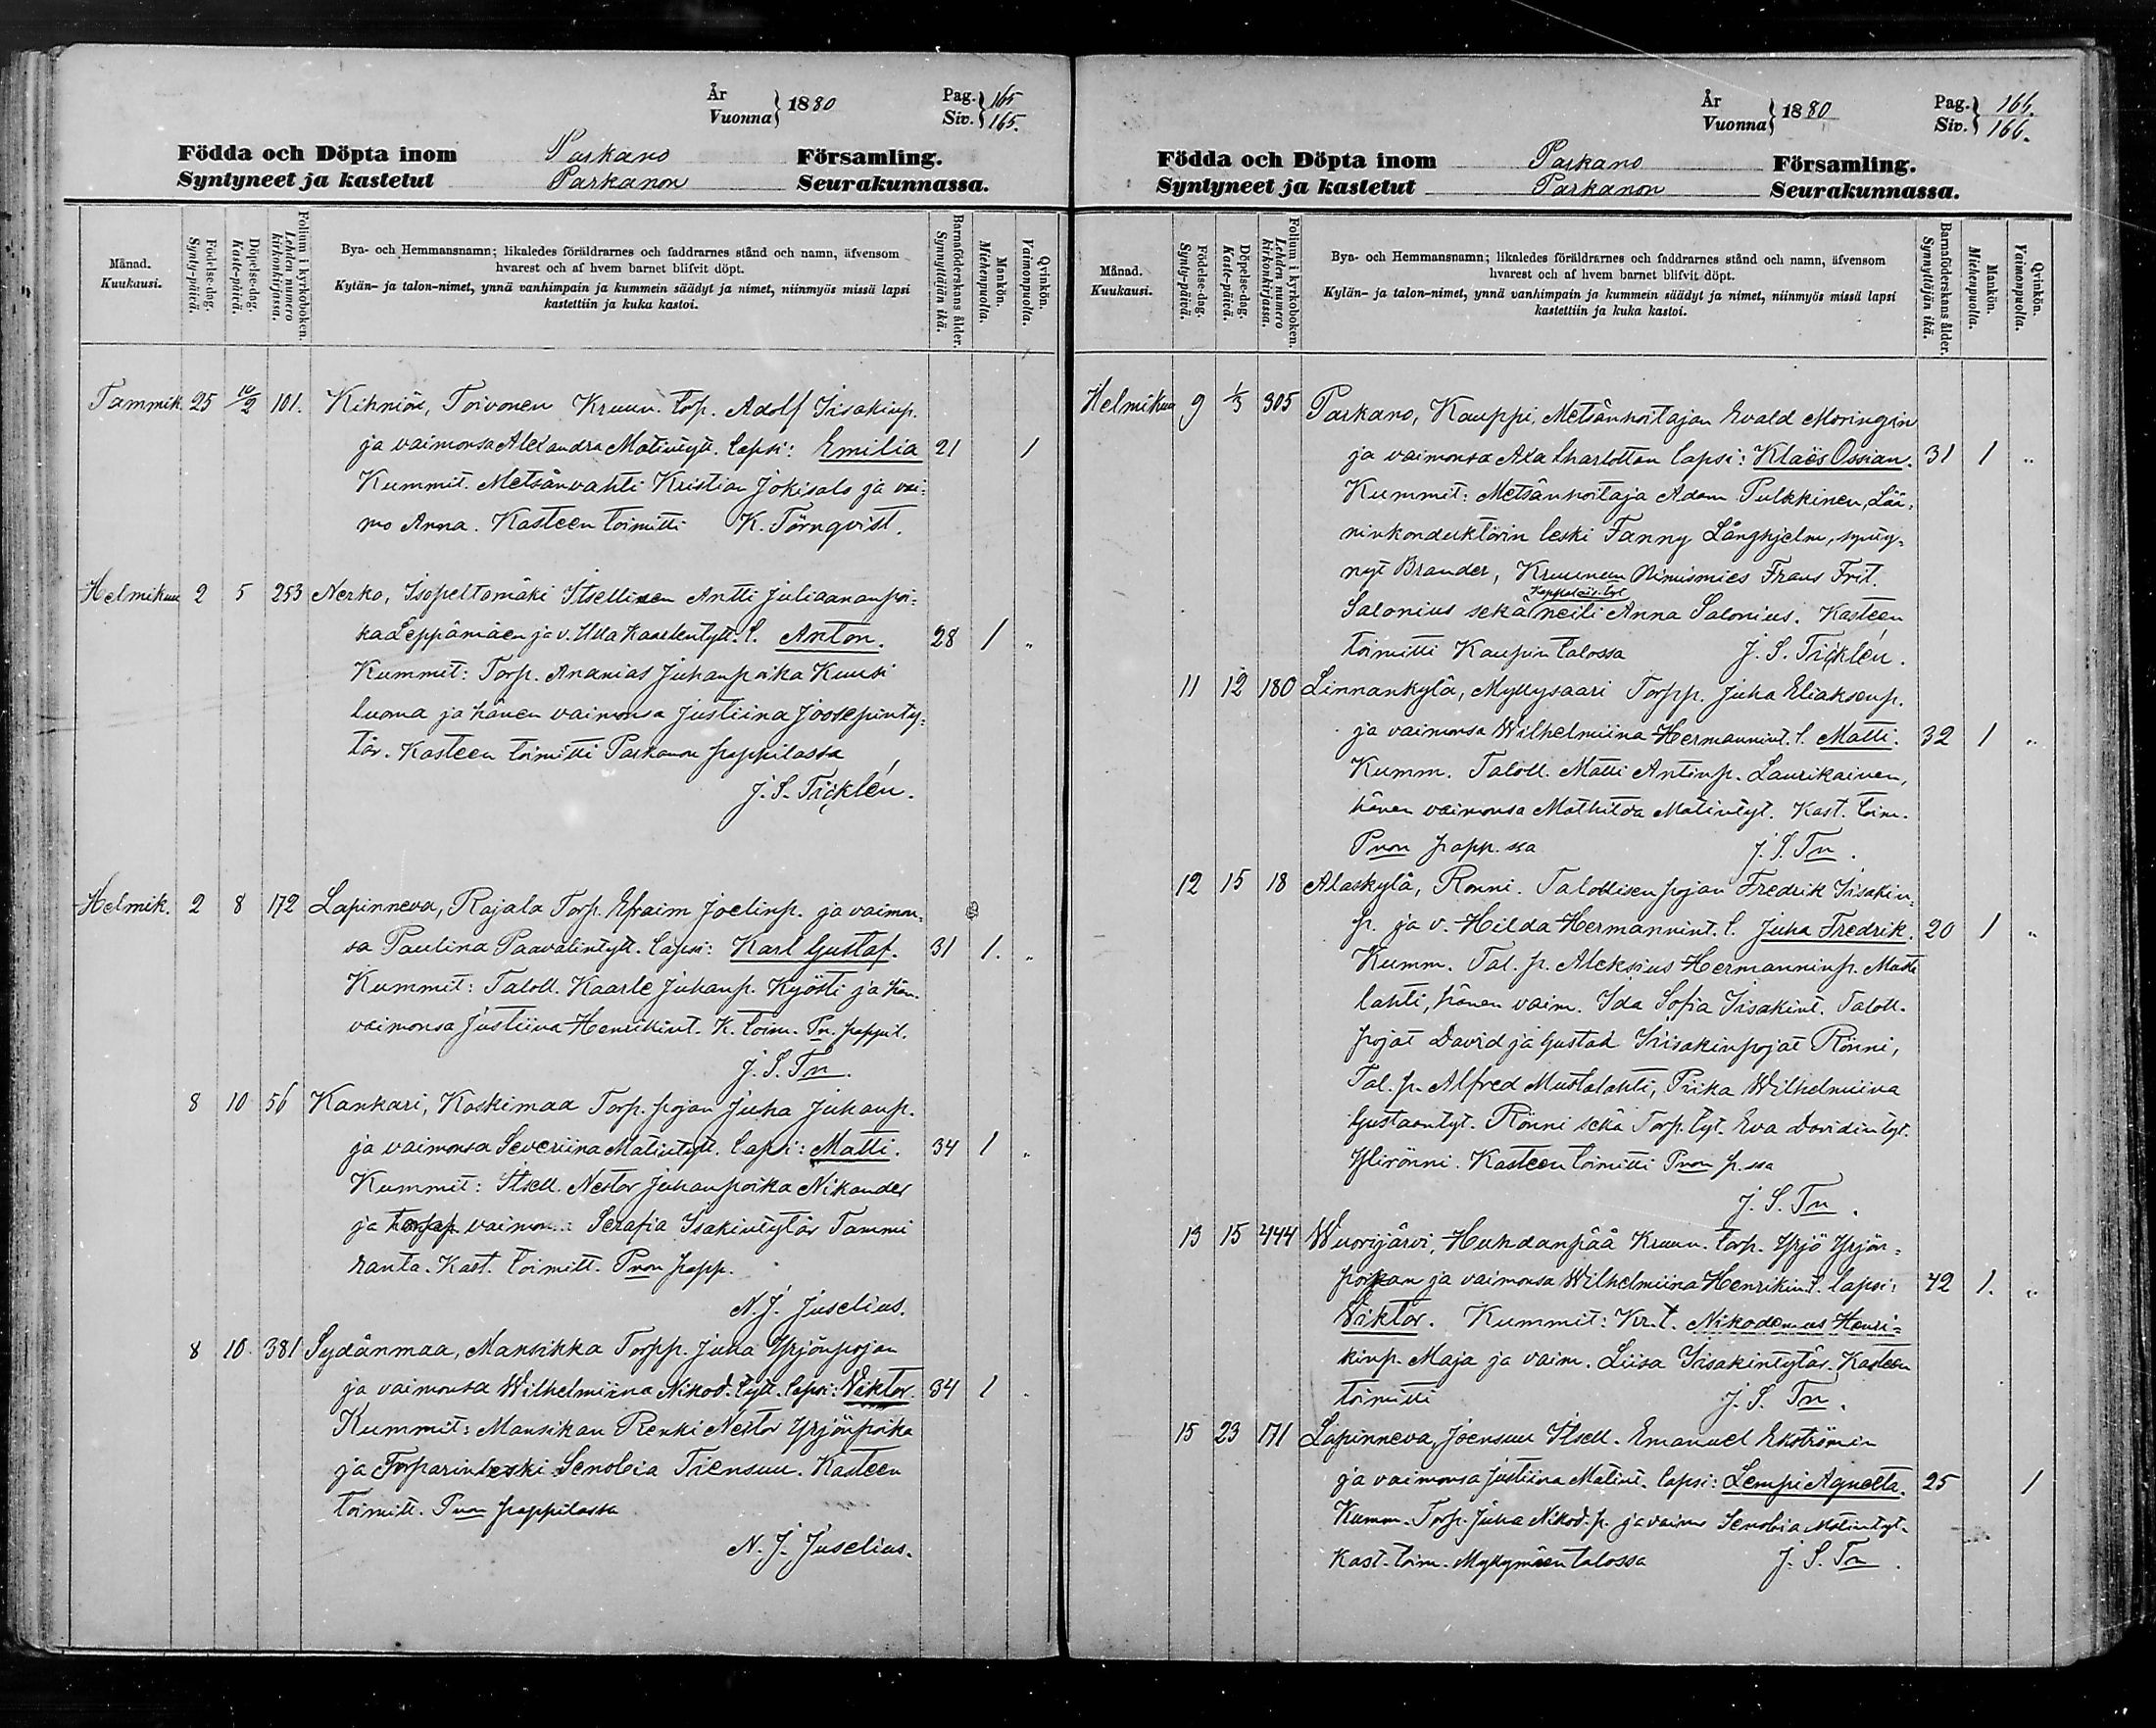 År
Vuonna } 1880
Pag. } 165
Siv. } 165.
Födda och Döpta inom Parkano Församling.
Syntyneet ja kastetut Parkanon Seurakunnassa.
Månad.
Kuukausi.
Födelse-dag.
Synty-päivä.
Döpelse-dag.
Kaste-päivä.
Folium i kyrkoboken.
Lehden numero kirkonkirjassa.
Bya- och Hemmansnamn; likaledes föräldrarnes och faddrarnes stånd och namn, äfvensom
hvarest och af hvem barnet blifvit döpt.
Kylän- ja talon-nimet, ynnä vanhimpain ja kummein säädyt ja nimet, niinmyös missä lapsi
kastettiin ja kuka kastoi.
Barnaföderskans ålder.
Synnyttäjän ikä.
Mankön.
Miehenpuolia.
Qvinkön.
Vaimonpuolia.
Tammik. 25 10/2 101. Kihniöe, Toivonen Kruun. torp. Adolf Iisakinp.
ja vaimonsa Alexandra Matintytt. lapsi: Emilia 21 1
Kummit. Metsänvahti Kristian Jokisalo ja vai-
mo Anna. Kasteen toimitti K. Törnqvist.
Helmikuu 2 5 253 Nerko, Isopeltomäki Itsellisen Antti Juliaananpoi-
ka Leppämäen ja v. Ulla Kaarlentytt. l. Anton. 28 1 "
Kummit: Torp. Ananias Juhanpoika Kuusi
luoma ja hänen vaimonsa Justiina Joosepinty-
tär. Kasteen toimitti Parkanon pappilassa
J. S. Tricklén.
Helmik. 2 8 172 Lapinneva, Rajala Torp. Efraim Joelinp. ja vaimon-
sa Paulina Paavalintytt. lapsi: Karl Gustaf. 31 1. "
Kummit: Taloll. Kaarle Juhanp. Kyösti ja hän.
vaimonsa Justiina Henrikint. K. toim. Pn. pappil.
J. S. Tn.
8 10 56 Kankari, Koskimaa Torp. pojan Juha Juhanp.
ja vaimonsa Severiina Matintytt. lapsi: Matti. 34 1 "
Kummit: Itsell. Nestor Juhanpoika Nikander
ja torpap. vaimon Serafia Isakintytär Tammi
ranta. Kast. toimitt. Pnon papp.
N. J. Juselius.
8 10 381 Sydänmaa, Mansikka Torpp. Juha Yrjönpojan
ja vaimonsa Wilhelmiina Nikod. tytt. lapsi: Viktor. 34 1
Kummit: Mansikan Renki Nestor Yrjönpoika
ja Torparinleski Senobia Tiensuu. Kasteen
toimitt. Pnon pappilassa
N. J. Juselius.
År
Vuonna } 1880
Pag. } 166.
Siv. } 166.
Födda och Döpta inom Parkano Församling.
Syntyneet ja kastetut Parkanon Seurakunnassa.
Månad.
Kuukausi.
Födelse-dag.
Synty-päivä.
Döpelse-dag.
Kaste-päivä.
Folium i kyrkoboken.
Lehden numero kirkonkirjassa.
Bya- och Hemmansnamn; likaledes föräldrarnes och faddrarnes stånd och namn, äfvensom
hvarest och af hvem barnet blifvit döpt.
Kylän- ja talon-nimet, ynnä vanhimpain ja kummein säädyt ja nimet, niinmyös missä lapsi
kastettiin ja kuka kastoi.
Barnaföderskans ålder.
Synnyttäjän ikä.
Mankön.
Miehenpuolia.
Qvinkön.
Vaimonpuolia.
Helmikuu 9 1/3 305 Parkano, Kauppi, Metsänhoitajan Evald Moringin
ja vaimonsa Charlottan lapsi: Klaës Ossian. 31 1 "
Kummit: Metsänhoitaja Adam Pulkkinen, Lää-
ninkonduktörin leski Fanny Långhjelm, synty-
nyt Brander, Kruunun Nimismies Frans Frit.
Salonius sekä Kappalais.tyt neiti Anna Salonius. Kasteen
toimitti Kaupin talossa J. S. Tricklén.
11 12 180 Linnankylä, Myllysaari Torpp. Juha Eliaksenp.
ja vaimonsa Wilhelmiina Hermannint. l. Matti. 32 1 "
Kumm. Taloll. Matti Antinp. Laurikainen,
hänen vaimonsa Mathilda Matintyt. Kast. toim.
Pnon papp. ssa J. S. Tn.
12 15 18 Alaskylä, Rönni. Talollisen pojan Fredrik Iisakin-
p. ja v. Hilda Hermannint. l. Juha Fredrik. 20 1 "
Kumm. Tal. p. Aleksius Hermanninp. Musta
lahti, hänen vaim. Ida Sofia Iisakint. Taloll.
pojat David ja Gustav Iisakinpojat Rönni,
Tal. p. Alfred Mustalahti, Piika Wilhelmiina
Gustaantyt. Rönni sekä Torp. tyt. Eva Davidintyt.
Ylirönni. Kasteen toimitti Pnon p. ssa
J. S. Tn.
13 15 444 Wuorijärvi, Huhdanpää Kruun. torp. Yrjö Yrjön-
poikan ja vaimonsa Wilhelmiina Henrikint. lapsi: 42 1. "
Viktor. Kummit: Kr. t. Nikodemus Henri-
kinp. Maja ja vaim. Liisa Iisakintytär. Kasteen
toimitti J. S. Tn.
15 23 171 Lapinneva, Joensuu Itsell. Emanuel Ekströmin
ja vaimonsa Justiina Matint. lapsi: Lempi Agnetta. 25 1
Kumm. Torp. Juha Nikod. p. ja vaimo Senobia Matintyt.
Kast. toim. Mykymäen talossa J. S. Tn.